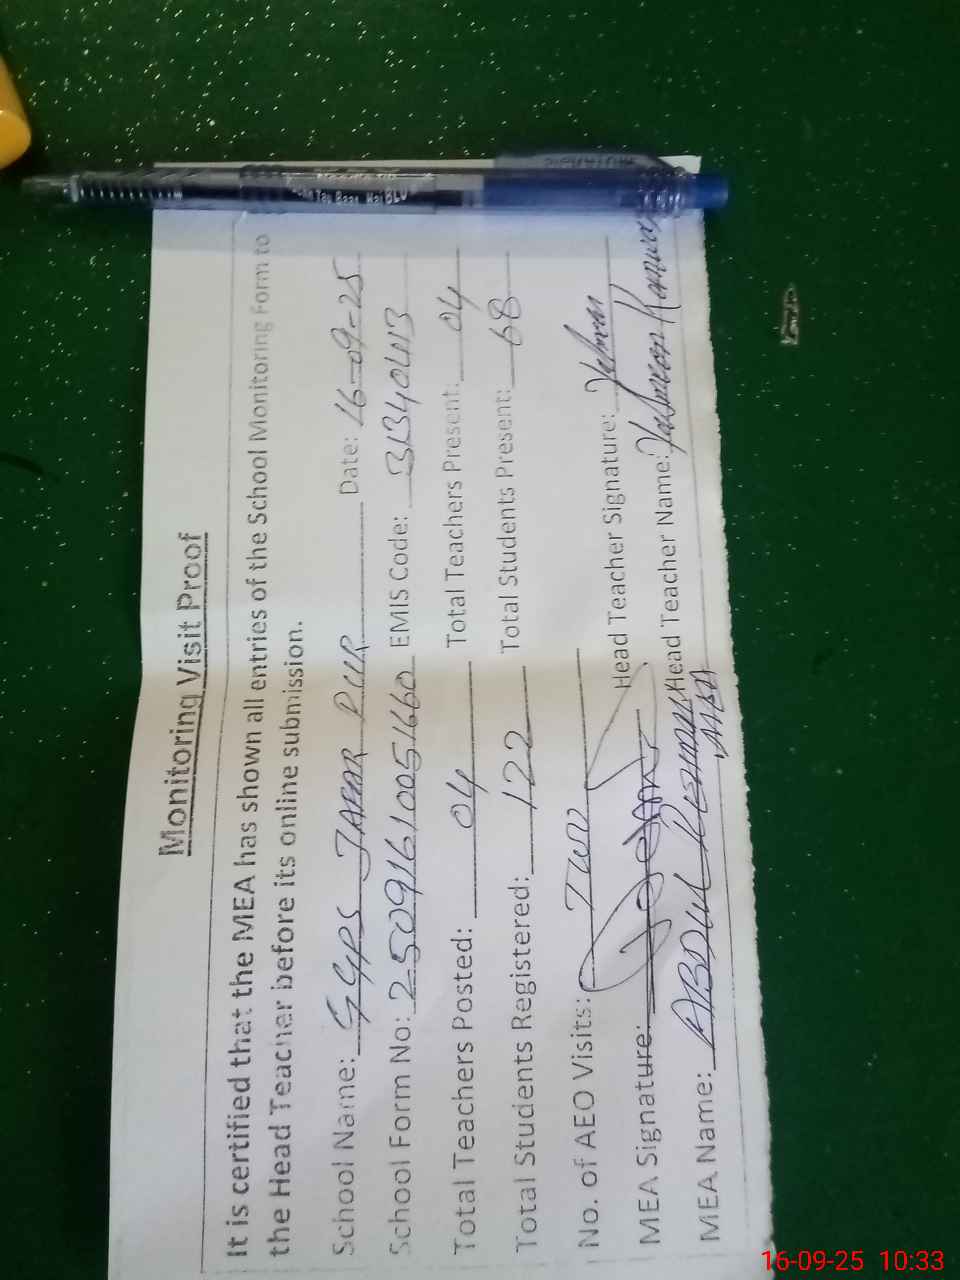 Monitoring Visit Proof
It is certified that the MEA has shown all entries of the School Monitoring Form to
the Head Teacher before its online submission.
School Name: GGPS JAFAR PUR Date: 16-09-25
School Form No: 2-5091610051660 EMIS Code: 31340413
Total Teachers Posted: 04 Total Teachers Present: 04
Total Students Registered: 122 Total Students Present: 68
No. of AEO Visits: TWO
MEA Signature: Head Teacher Signature:
MEA Name: ABDUL REHMAN Head Teacher Name: Kanwal
16-09-25 10:33